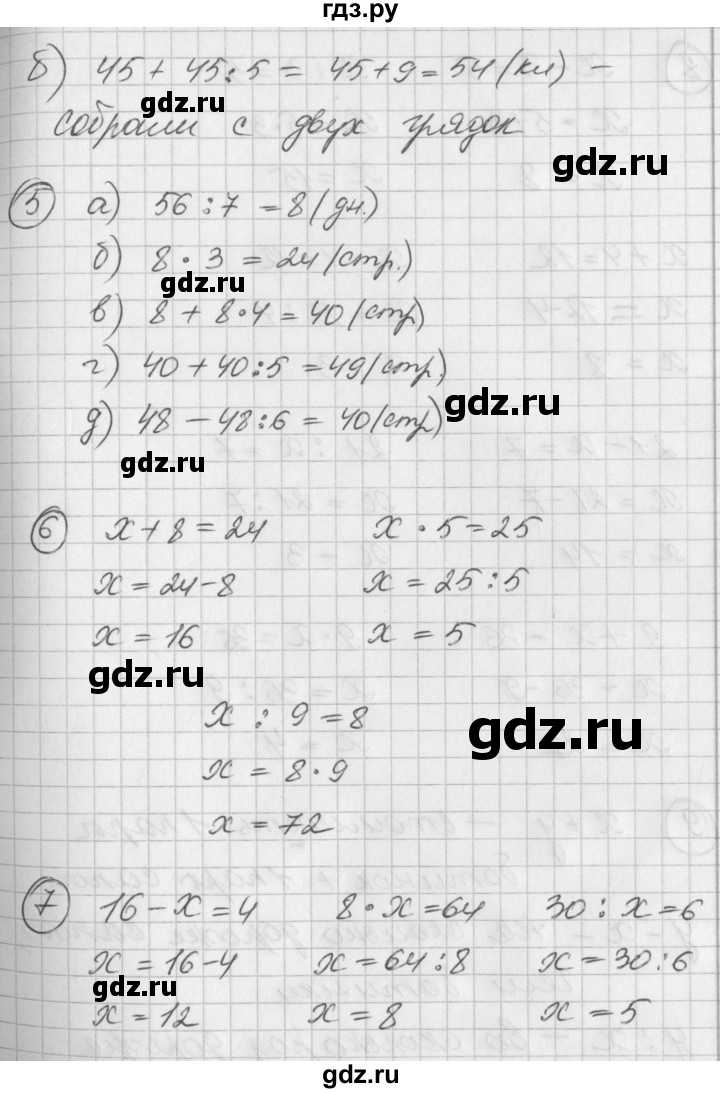 гдз.ру
б) 45 + 45 : 5 = 45 + 9 = 54 (кл) –
gdz.ru
собрали с двух грядок
gdz.ru
5 а) 56 : 7 = 8 (дн.)
б) 8 · 3 = 24 (стр.)
gdz.ru
в) 8 + 8 · 4 = 40 (стр)
г) 40 + 40 : 5 = 49 (стр.)
gdz.ru
д) 48 – 48 : 6 = 40 (стр)
gdz.ru
6 x + 8 = 24 x · 5 = 25
x = 24 - 8 x = 25 : 5
x = 16 x = 5
gdz.ru
x : 9 = 8
gdz.ru
x = 8 · 9
x = 72
7 16 - x = 4 8 · x = 64 30 : x = 6
x = 16 - 4 x = 64 : 8 x = 30 : 6
gdz.ru
x = 12 x = 8 x = 5
gdz.ru